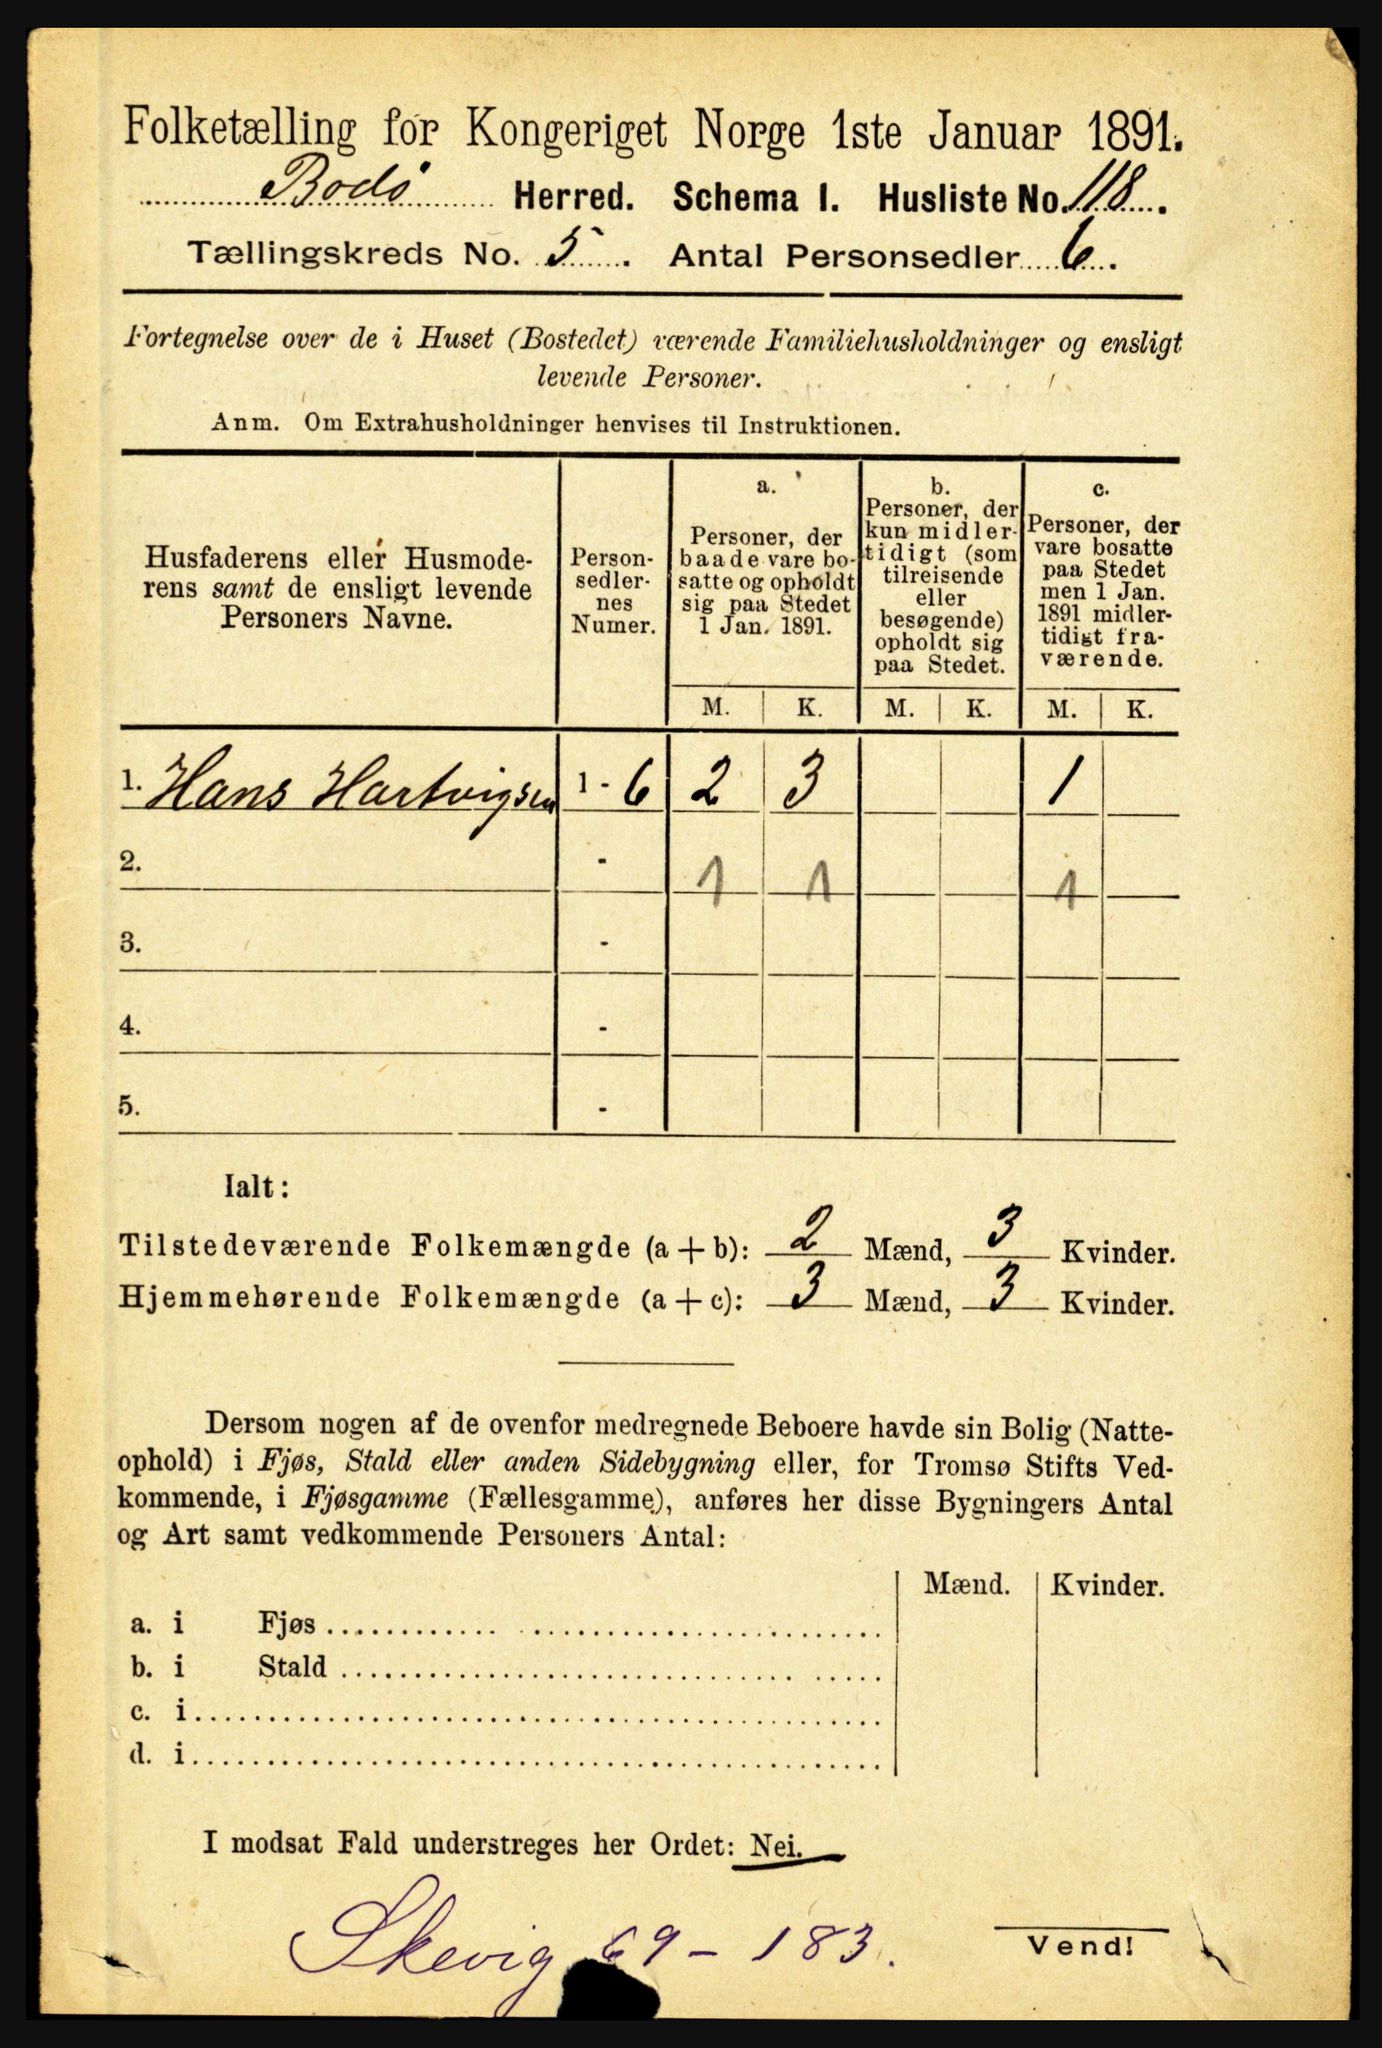 Folketælling for Kongeriget Norge 1ste Januar 1891.
Bodø Herred. Schema I. Husliste No. 118.
Tællingskreds No. 5. Antal Personsedler 6.
Fortegnelse over de i Huset (Bostedet) værende Familiehusholdninger og ensligt
levende Personer.
Anm. Om Extrahusholdninger henvises til Instruktionen.
Husfaderens eller Husmode-
rens samt de ensligt levende
Personers Navne.
Person-
sedler-
nes
Numer.
a.
Personer, der
baade vare bo-
satte og opholdt
sig paa Stedet
1 Jan. 1891.
b.
Personer, der
kun midler-
tidigt (som
tilreisende
eller
besøgende)
opholdt sig
paa Stedet.
c.
Personer, der
vare bosatte
paa Stedet
men 1 Jan.
1891 midler-
tidigt fra-
værende.
M. K. M. K. M. K.
1. Hans Hartvigsen 1 - 6 2 3 1
2. - 1 1 1
3. -
4. -
5. -
Ialt:
Tilstedeværende Folkemængde (a + b): 2 Mænd, 3 Kvinder.
Hjemmehørende Folkemængde (a + c): 3 Mænd, 3 Kvinder.
Dersom nogen af de ovenfor medregnede Beboere havde sin Bolig (Natte-
ophold) i Fjøs, Stald eller anden Sidebygning eller, for Tromsø Stifts Ved-
kommende, i Fjøsgamme (Fællesgamme), anføres her disse Bygningers Antal
og Art samt vedkommende Personers Antal:
Mænd. Kvinder.
a. i Fjøs
b. i Stald
c. i
d. i
I modsat Fald understreges her Ordet: Nei.
Skevig 69 - 183.
Vend!